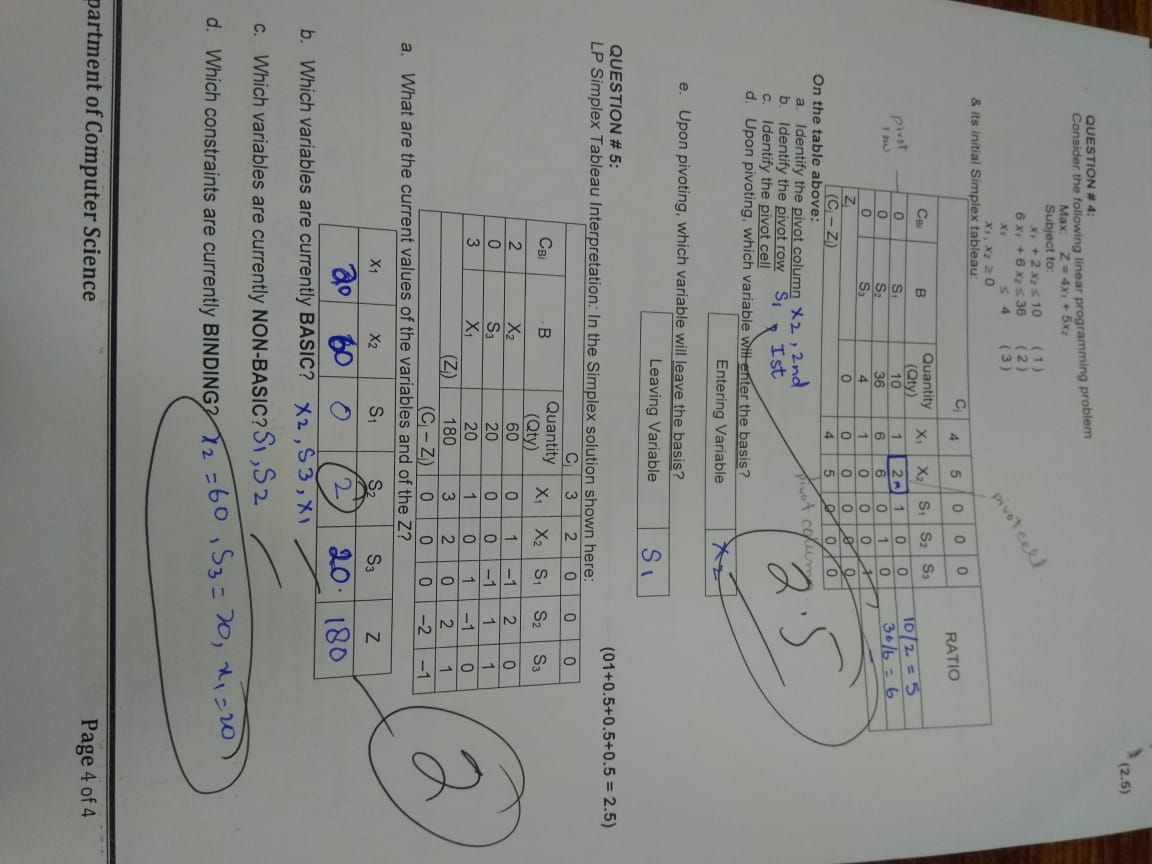 (2.5)
QUESTION # 4:
Consider the following linear programming problem
Max: Z = 4x₁ + 5x₂
Subject to:
x₁ + 2 x₂ ≤ 10 (1)
6 x₁ + 6 x₂ ≤ 36 (2)
x₁ ≤ 4 (3)
x₁, x₂ ≥ 0
& its initial Simplex tableau:
pivot cell
Cj 4 5 0 0 0 RATIO
CBi B Quantity (Qty) X₁ X₂ S₁ S₂ S₃
0 S₁ 10 1 2 1 0 0 10/2 = 5
pivot row
0 S₂ 36 6 6 0 1 0 36/6 = 6
0 S₃ 4 1 0 0 0 1
Zj 0 0 0 0 0 0
(Cj – Zj) 4 5 0 0 0
pivot column
On the table above:
a. Identify the pivot column X2, 2nd
b. Identify the pivot row S1, Ist
c. Identify the pivot cell
d. Upon pivoting, which variable will enter the basis?
2.5
Entering Variable X2
e. Upon pivoting, which variable will leave the basis?
Leaving Variable S1
QUESTION # 5: (01+0.5+0.5+0.5 = 2.5)
LP Simplex Tableau Interpretation: In the Simplex solution shown here:
Cj 3 2 0 0 0
CBi B Quantity (Qty) X₁ X₂ S₁ S₂ S₃
2 X₂ 60 0 1 −1 2 0
0 S₃ 20 0 0 −1 1 1
3 X₁ 20 1 0 1 −1 0
(Zj) 180 3 2 0 2 1
(Cj – Zj) 0 0 0 −2 −1
2
a. What are the current values of the variables and of the Z?
X₁ X₂ S₁ S₂ S₃ Z
20 60 0 2 20. 180
b. Which variables are currently BASIC? X2, S3, X1
c. Which variables are currently NON-BASIC? S1, S2
d. Which constraints are currently BINDING? X2 = 60, S3 = 20, x1 = 20
partment of Computer Science Page 4 of 4